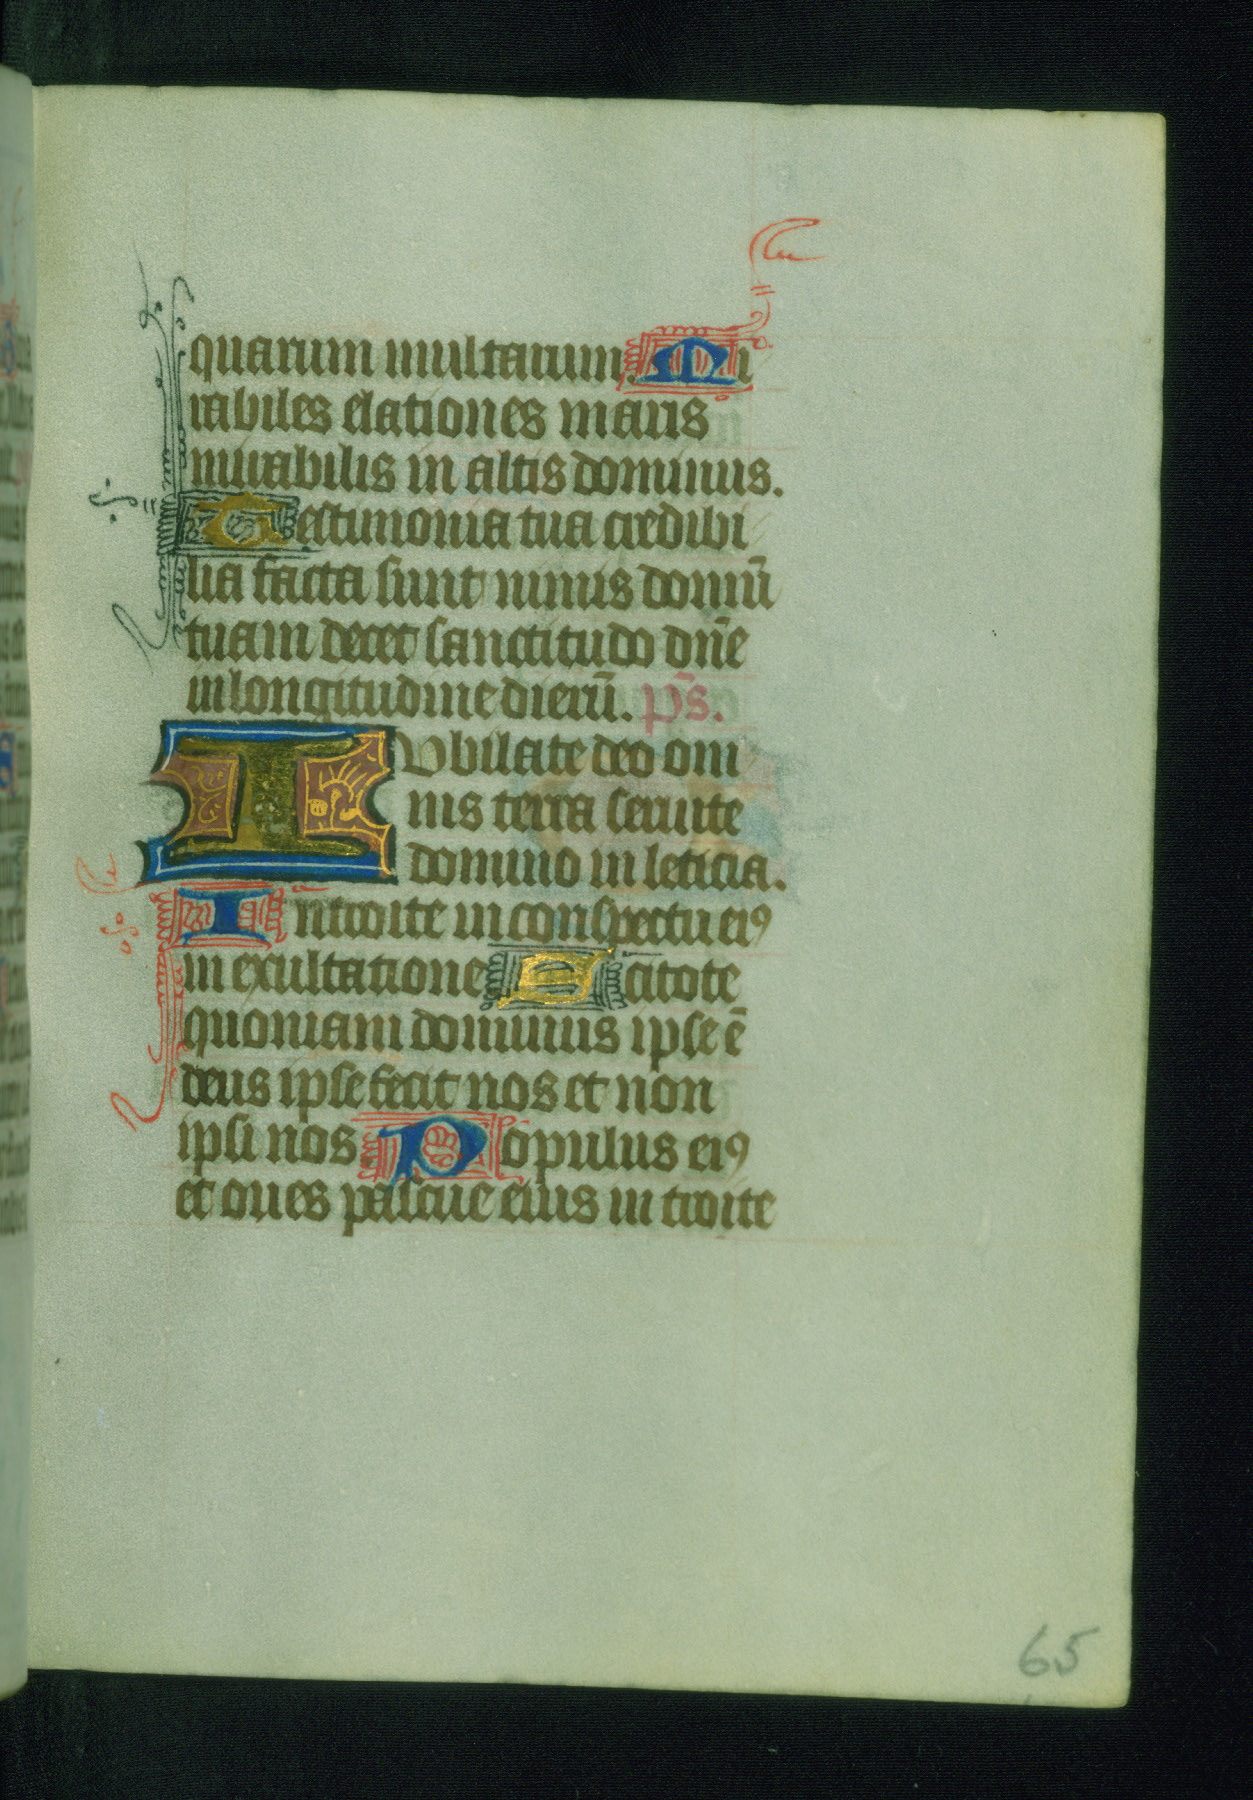 quarum multarum. Mi
rabiles elationes maris
mirabilis in altis dominus.
Testimonia tua credibi
lia facta sunt nimis domū
tuam decet sanctitudo dn̄e
in longitudine dierū. ps̄.
Iubilate deo om
nis terra seruite
domino in leticia.
Introite in conspectu eiꝰ
in exultatione Scitote
quoniam dominus ipse ē
deus ipse fecit nos et non
ipsi nos. Populus eiꝰ
et oues pascue eius introite
65